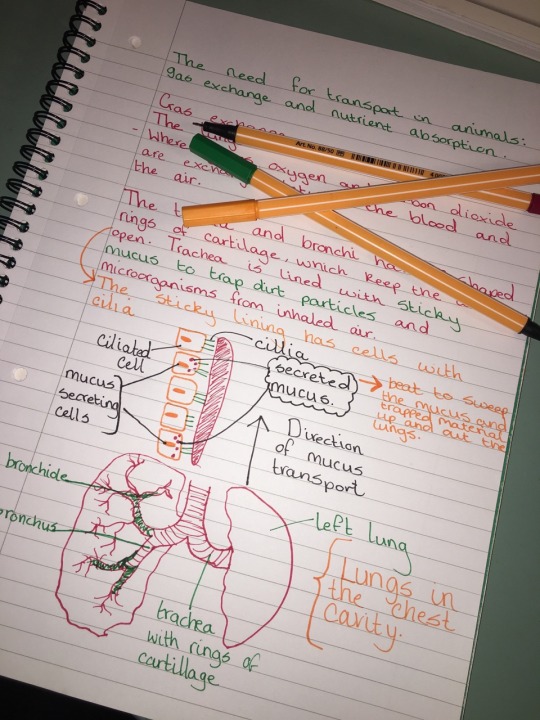 The need for transport in animals:
gas exchange and nutrient absorption.
Gas
The
- Where oxygen
are the blood and
the air.
The and bronchi
rings of cartilage, which keep the
open. Trachea is lined with sticky
mucus to trap dirt particles and
microorganisms from inhaled air.
The sticky lining has cells with
cilia
ciliated
cell
cillia
mucus
secreting
cells
secreted
mucus.
beat to sweep
the mucus and
trapped material
up and out the
lungs.
Direction
of mucus
transport
bronchide
bronchus
left lung
Lungs in
the chest
cavity.
trachea
with rings of
cartillage